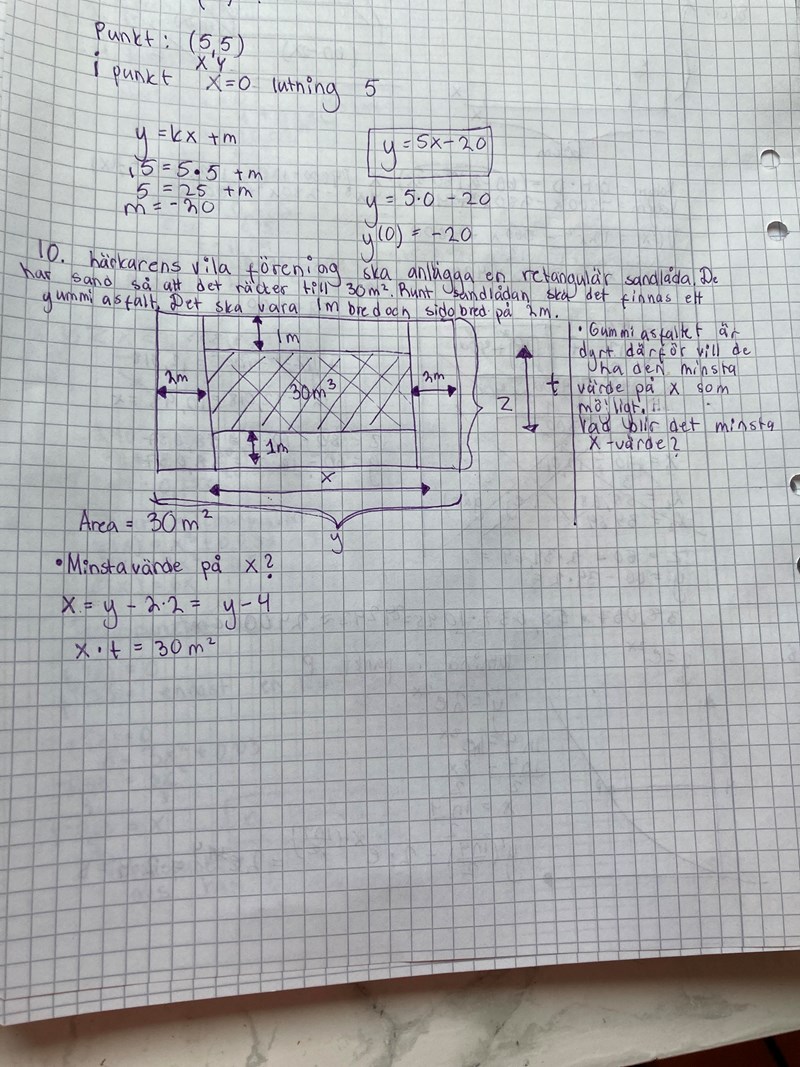 Punkt: (5,5)
x y
i punkt x=0 lutning 5
y = kx + m
5 = 5·5 + m
5 = 25 + m
m = -20
y = 5x - 20
y = 5·0 - 20
y(0) = -20
10. härkarens vila förening ska anlägga en retangulär sandlåda. De
har sand så att det räcker till 30m². Runt sandlådan ska det finnas ett
gummi asfalt. Det ska vara 1m bred och sido bred på 2m.
1m
2m
30m³
2m
1m
x
y
z
t
• Gummi asfaltet är
dyrt därför vill de
ha den minsta
värde på x som
möjligt.
Vad blir det minsta
x-värde?
Area = 30m²
• Minsta värde på x?
x = y - 2·2 = y - 4
x · t = 30 m²